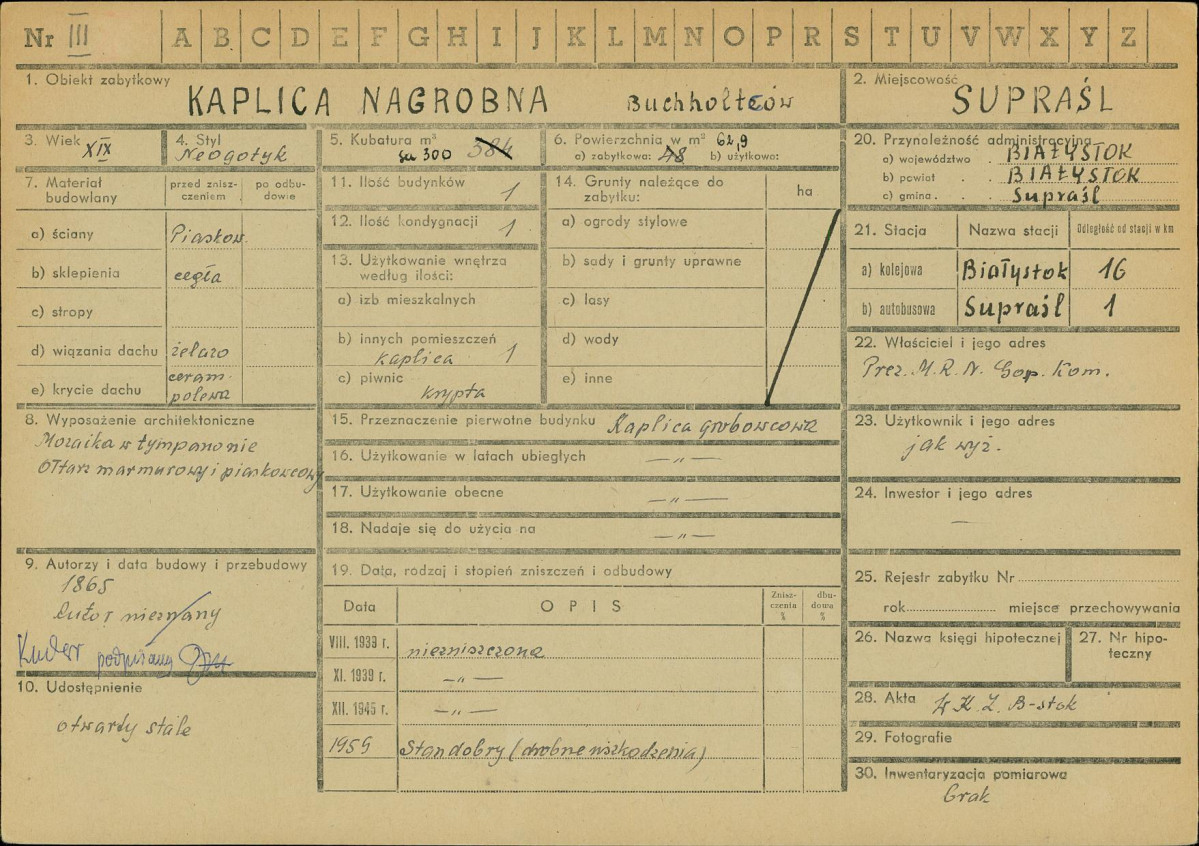 Nr III A B C D E F G H I J K L M N O P R S T U V W X Y Z
1. Obiekt zabytkowy
KAPLICA NAGROBNA Buchholtzów
2. Miejscowość
SUPRAŚL
3. Wiek
XIX
4. Styl
Neogotyk
5. Kubatura m³
ca 300 384
6. Powierzchnia w m² 62,9
a) zabytkowa: 48 b) użytkowa:
7. Materiał budowlany
przed zniszczeniem
po odbudowie
a) ściany Piaskow.
b) sklepienia cegła
c) stropy
d) wiązania dachu żelazo
e) krycie dachu ceram. polewa
8. Wyposażenie architektoniczne
Mozaika w tympanonie
Ołtarz marmurowy i piaskowcowy
9. Autorzy i data budowy i przebudowy
1865
autor nieznany
podpisany
10. Udostępnienie
otwarty stale
11. Ilość budynków 1
12. Ilość kondygnacji 1
13. Użytkowanie wnętrza
według ilości:
a) izb mieszkalnych
b) innych pomieszczeń
kaplica 1
c) piwnic
krypta
14. Grunty należące do
zabytku:
ha
a) ogrody stylowe
b) sady i grunty uprawne
c) lasy
d) wody
e) inne
15. Przeznaczenie pierwotne budynku Kaplica grobowcowa
16. Użytkowanie w latach ubiegłych —„—
17. Użytkowanie obecne —„—
18. Nadaje się do użycia na —„—
19. Data, rodzaj i stopień zniszczeń i odbudowy
Data OPIS Zniszczenia % dbudowa %
VIII. 1939 r. niezniszczona
XI. 1939 r. —„—
XII. 1945 r. —„—
1959 Stan dobry (drobne uszkodzenia)
20. Przynależność administracyjna
a) województwo . BIAŁYSTOK
b) powiat . . BIAŁYSTOK
c) gmina . . . Supraśl
21. Stacja Nazwa stacji Odległość od stacji w km
a) kolejowa Białystok 16
b) autobusowa Supraśl 1
22. Właściciel i jego adres
Prez. M.R.N. Gosp. Kom.
23. Użytkownik i jego adres
jak wyż.
24. Inwestor i jego adres
—
25. Rejestr zabytku Nr
rok miejsce przechowywania
26. Nazwa księgi hipotecznej
27. Nr hipoteczny
28. Akta W.K.Z. B-stok
29. Fotografie
30. Inwentaryzacja pomiarowa
brak